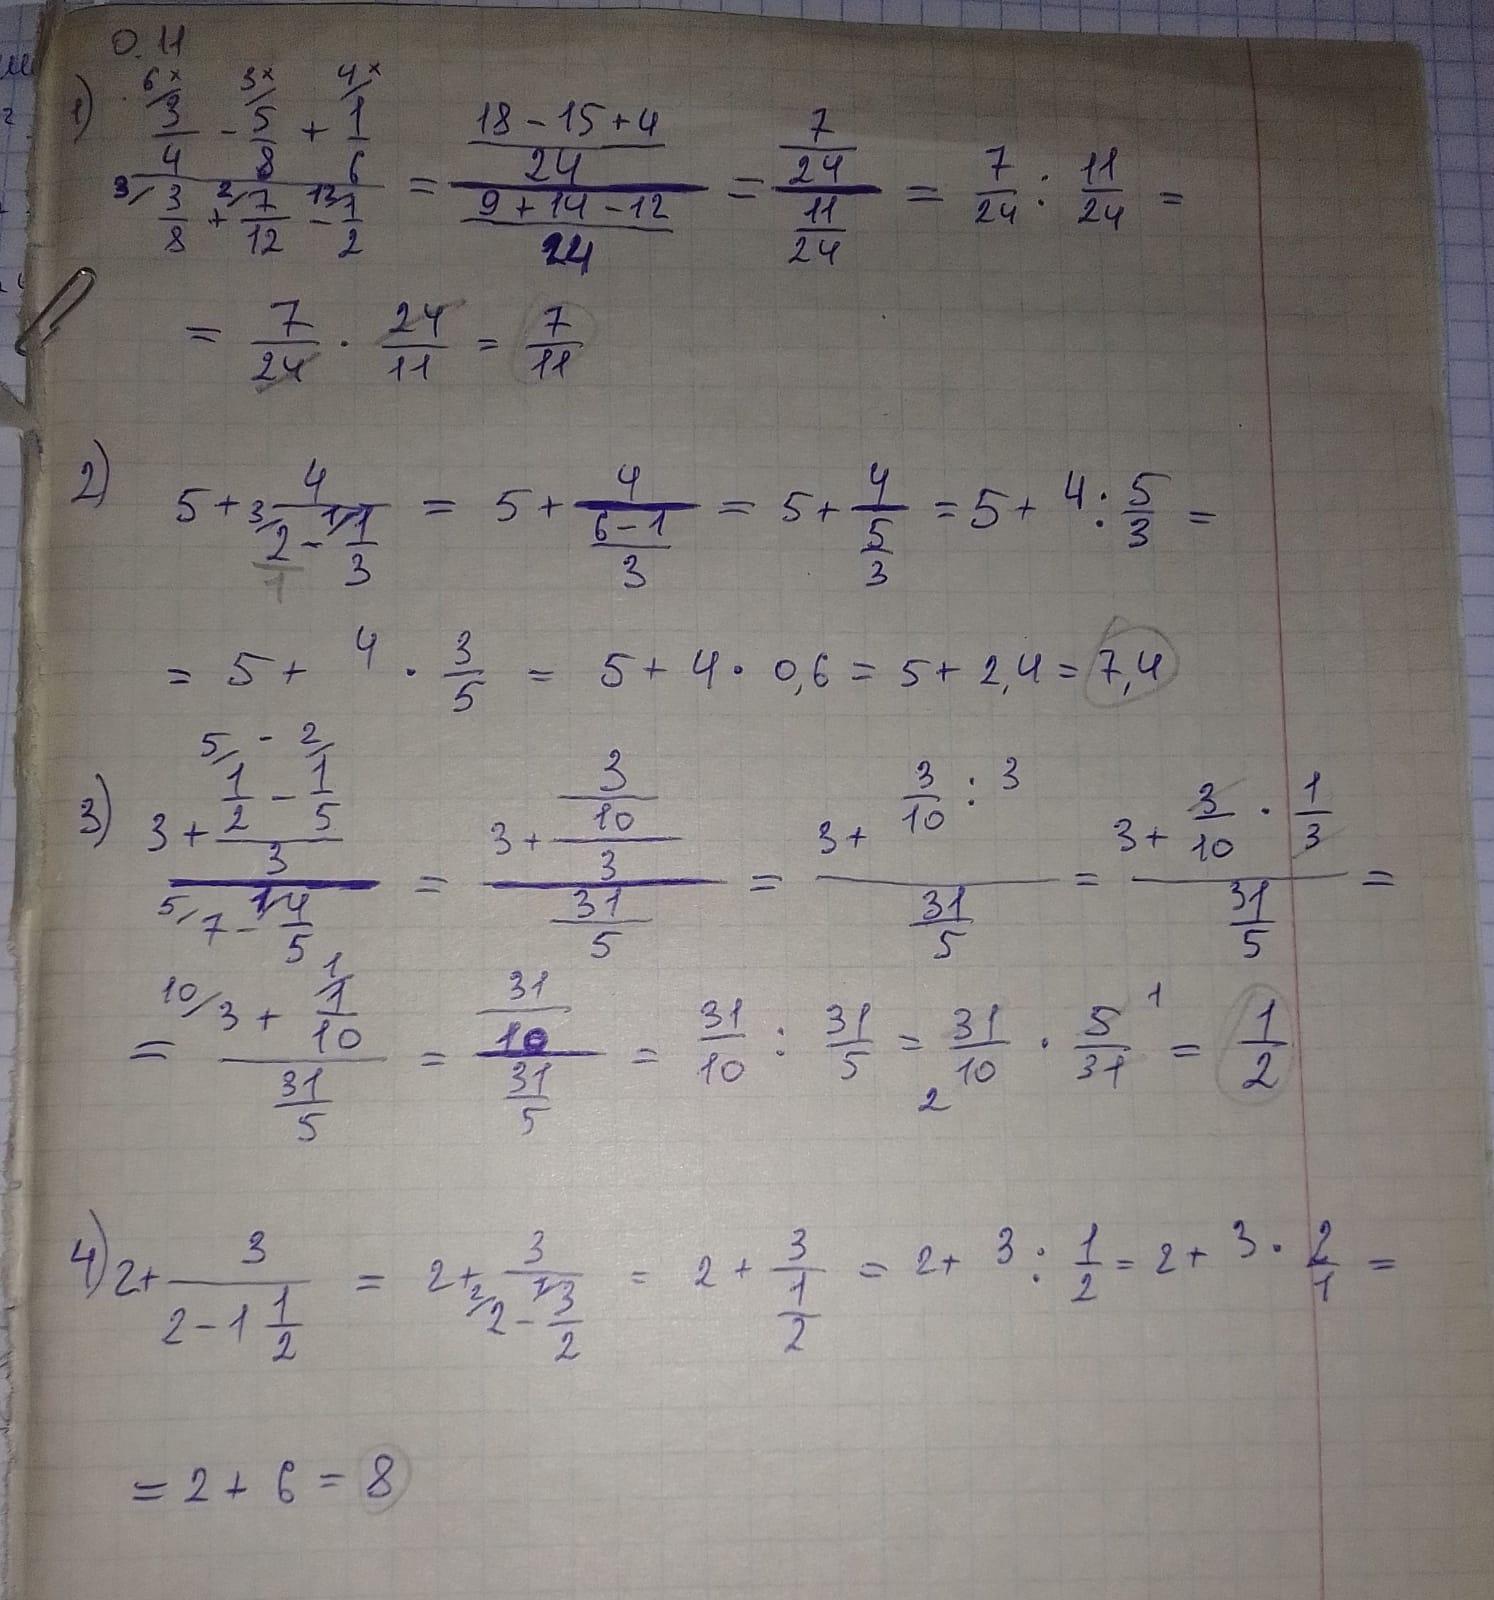 0.11
1) (6/ 3/4 - 3/ 5/8 + 4/ 1/6) / (3/ 3/8 + 2/ 7/12 - 12/ 1/2) = ((18 - 15 + 4)/24) / ((9 + 14 - 12)/24) = (7/24) / (11/24) = 7/24 : 11/24 =
= 7/24 · 24/11 = 7/11
2) 5 + 4 / (3/ 2/1 - 1/ 1/3) = 5 + 4 / ((6-1)/3) = 5 + 4 / (5/3) = 5 + 4 : 5/3 =
= 5 + 4 · 3/5 = 5 + 4 · 0,6 = 5 + 2,4 = 7,4
3) (3 + (5/ 1/2 - 2/ 1/5) / 3) / (5/ 7 - 1/ 4/5) = (3 + (3/10) / 3) / (31/5) = (3 + 3/10 : 3) / (31/5) = (3 + 3/10 · 1/3) / (31/5) =
= (10/ 3 + 1/ 1/10) / (31/5) = (31/10) / (31/5) = 31/10 : 31/5 = 31/10 2 · 5/31 1 = 1/2
4) 2 + 3 / (2 - 1 1/2) = 2 + 3 / (2/ 2 - 1/ 3/2) = 2 + 3 / (1/2) = 2 + 3 : 1/2 = 2 + 3 · 2/1 =
= 2 + 6 = 8